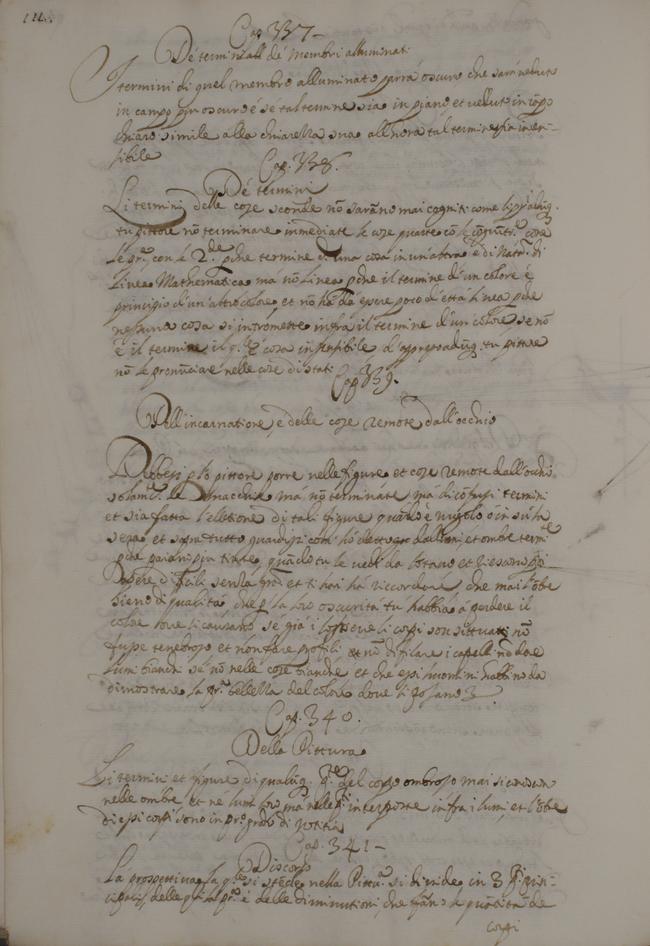 Cap. 337
De termini all de membri alluminati
I termini di quel membro alluminato parrà oscuro che sara veduto
in campo piu oscuro é se tal termine sia in piano, et veduto in cãpo
chiaro simile alla chiarezza sua allhora tal termine fia insen-
sibile
Cap. 338.
De termini
Li termini delle coze seconde nõ sarãno mai cogniti come li primi
tu pittore nõ terminare inmediate le coze quarte cõ le quinte come
le pr.e con le 2.de pche termine d'una cosa in un'altra é di Natra. di
linea Mathematica, má nõ linea pche il termine d'un colore é
principio d'un'altro colore, et nõ há da essere poco d'età linea pche
nessuna cosa si intromette infra il termine d'un colore se nõ
é il termine, il q.le é cosa insensibile d'appresso tu pittore
nõ le pronunciare nelle coze distati
Cap. 339.
Dell'incarnatione, e delle coze remote dall'occhio
Debbesi p lo pittore porre nelle figure et coze remote dall'occhio
solam.te le macchie má nõ terminate, má di cõfusi termini
et sia fatta l'eletione di tali figure quãdo é nugolo ó in sú la
sera, et sopra tutto guardisi com'hó detto da lumi, et ombre term.te
pche paiono poi tinte, quãdo tu le vedi da lontano et riescono poi
opere difficili senza gra. et ti hai há riccordare che mai l'õbre
sieno di qualitá che p la loro oscuritá tu habbia á perdere il
colore dove si causano se giá i loro ove li corpi son situati nõ
fusse tenebroso et non fare profili et nõ di filare i capelli nõ dare
lumi bianchi se nõ nelle coze bianche et che essi lumi habbino da
dimostrare la pr.a bellezza del colore dove si posano
Cap. 340.
Della Pittura
Li termini et figure di qualũq. p.te del corpo ombroso mai si conoscono
nelle ombre et ne lumi loro má nelle p.ti interposte infra i lumi, et l'õbre
di essi corpi sono in pr.o grado di notitia
Cap. 341
Discorso
La prospettiva la q.le si stẽde nella Pittu.a si divide in 3 p.ti prin-
cipali, delle q.li la pr.a é delle diminutioni che fãno le quãtitá de
corpi